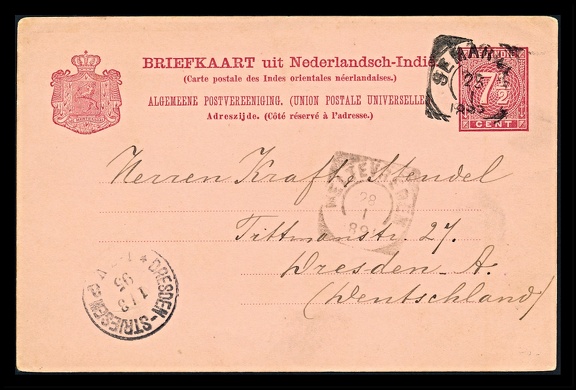 BRIEFKAART uit Nederlandsch-Indië
(Carte postale des Indes orientales néerlandaises.)
ALGEMEENE POSTVEREENIGING. (UNION POSTALE UNIVERSELLE
Adreszijde. (Côté réservé à l'adresse.)
7½
CENT
SEMARA
23
1
Herren Krafft, Hendel
WELTEVREDEN
28
1
Tittmanstr. 27.
Dresden-A.
(Deutschland)
DRESDEN-STRIESEN
1/3
95